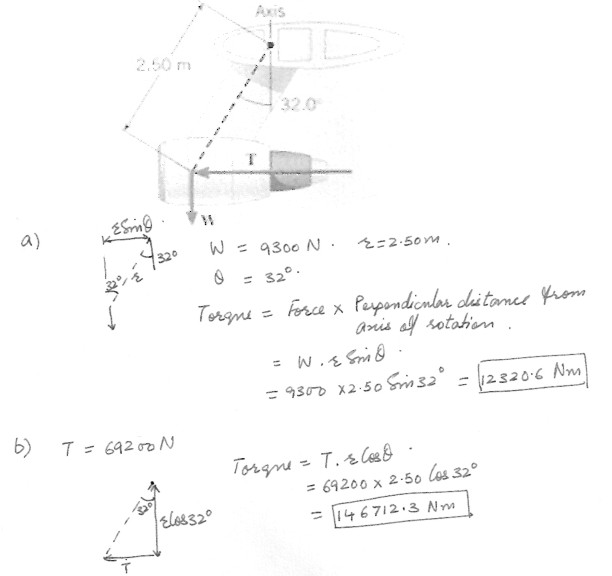 Axis
2.50 m
32.0°
T
W
a)
rSinθ
32°
32°
r
W = 9300 N. r = 2.50m.
θ = 32°.
Torque = Force × Perpendicular distance from
axis of rotation.
= W. r Sinθ.
= 9300 × 2.50 Sin 32° = 12320.6 Nm
b) T = 69200 N
Torque = T. r Cosθ.
= 69200 × 2.50 Cos 32°
= 146712.3 Nm
32°
rCos32°
T